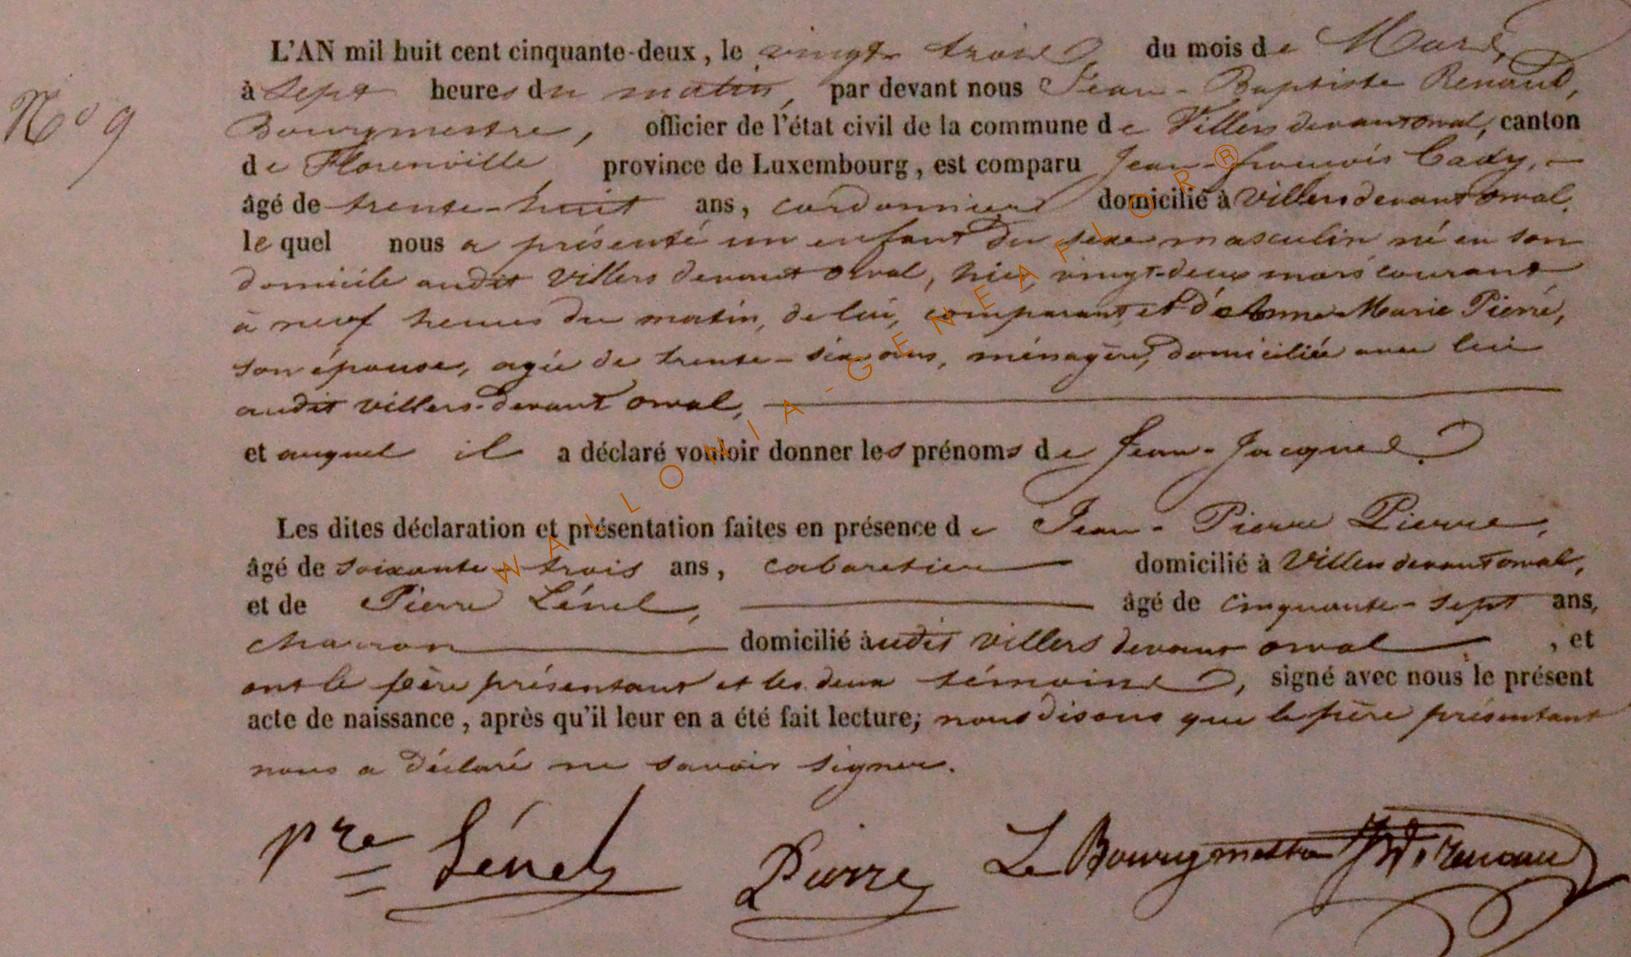 L'AN mil huit cent cinquante-deux, le vingt trois du mois de Mars,
à sept heures du matin, par devant nous Jean-Baptiste Renaud,
N° 9
Bourgmestre, officier de l'état civil de la commune de Villers devant orval, canton
de Florenville province de Luxembourg, est comparu Jean-francois Cady,
âgé de trente-huit ans, cordonnier domicilié à Villers devant orval,
lequel nous a présenté un enfant du sexe masculin né en son
domicile audit Villers devant orval, hier vingt-deux mars courant
à neuf heures du matin, de lui, comparant, et d'Anne Marie Pierre,
son épouse, agée de trente-six ans, ménagère, domiciliée avec lui
audit villers-devant orval,
et auquel il a déclaré vouloir donner les prénoms de Jean-Jacques.
Les dites déclaration et présentation faites en présence de Jean-Pierre Pierre,
âgé de soixante-trois ans, cabaretier domicilié à Villers devant orval,
et de Pierre Lénel, âgé de cinquante-sept ans,
charron domicilié audit villers devant orval, et
ont le père présentant et les deux témoins, signé avec nous le présent
acte de naissance, après qu'il leur en a été fait lecture; nous disons que le père présentant
nous a déclaré ne savoir signer.
Pre Lénel Pierre Le Bourgmestre JB Renaud
WALLONIA-GENEAFLOR®